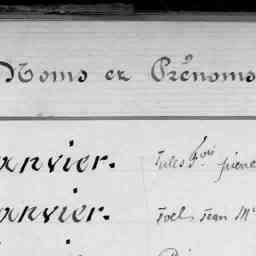 Noms et Prénoms
anvier. Jules Fois
anvier. Joël Jean M